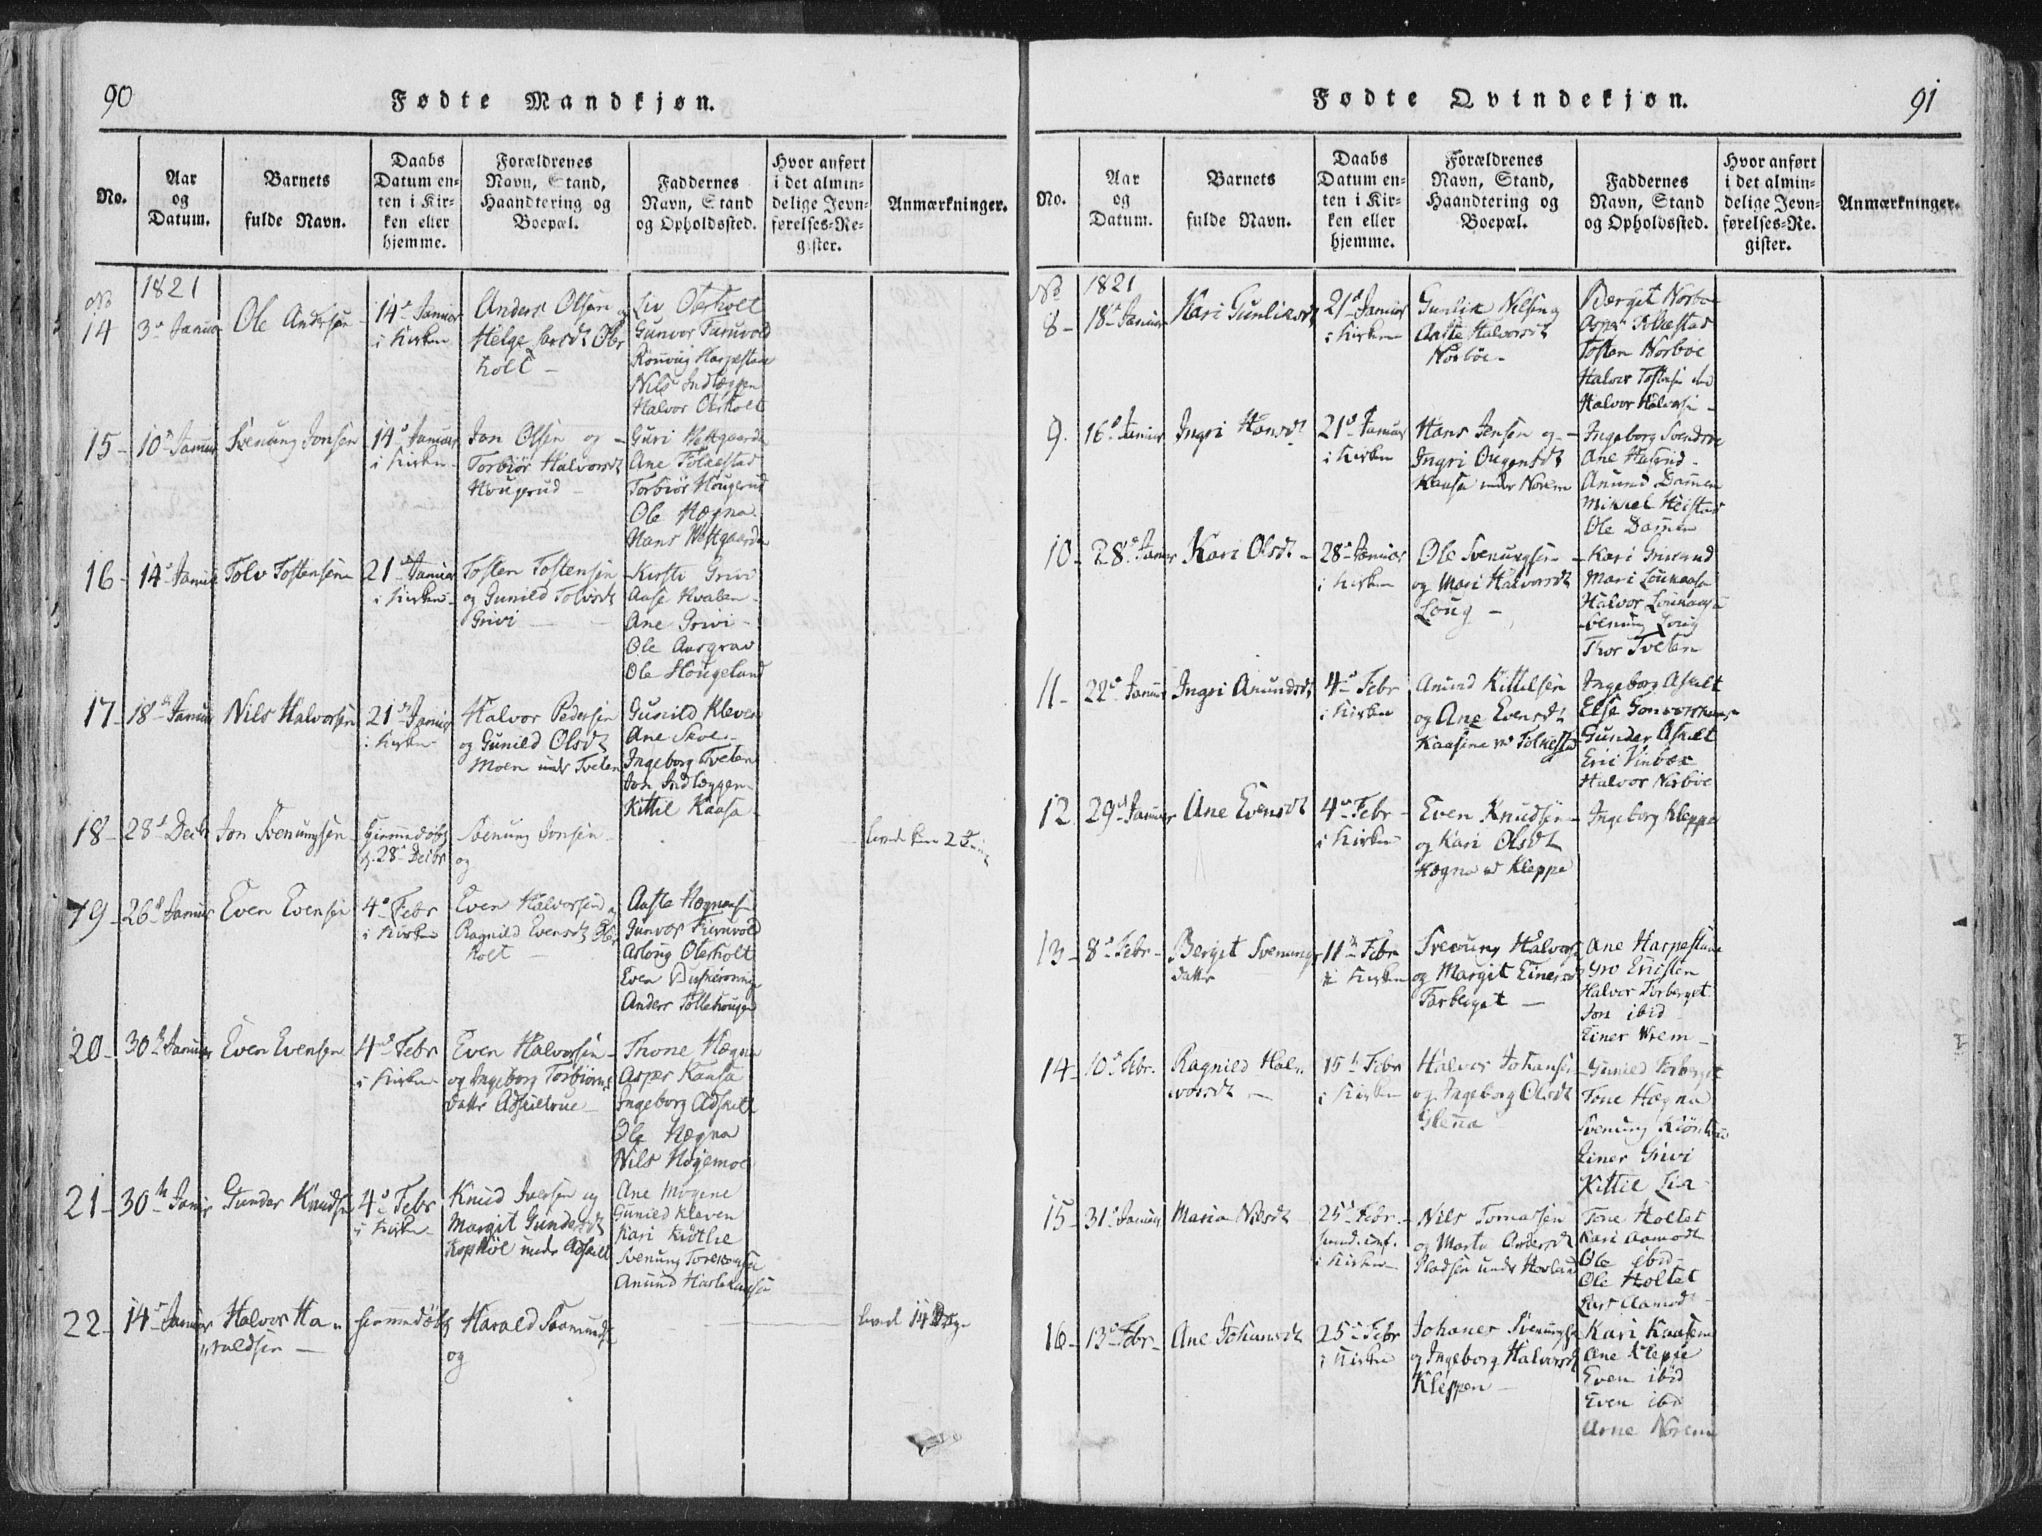 90
Fødte Mandkjøn.
No.
Aar
og
Datum.
Barnets
fulde Navn.
Daabs
Datum en-
ten i Kir-
ken eller
hjemme.
Forældrenes
Navn, Stand,
Haandtering og
Boepæl.
Faddernes
Navn, Stand
og Opholdssted.
Hvor anført
i det almin-
delige Jevn-
førelses-Re-
gister.
Anmærkninger.
No
1821
14
3d Januar
Ole Andersen
14d Januar
i Kirken
Anders Olsen og
Helge
holt
Liv Oterholt
Gunvor Furuvold
Harpestan
Nils Indlæggen
Halvor Oterholt
15
10d Januar
Svenung Jonsen
14d Januar
i Kirken
Jon Olsen og
Torbiør Halvorsdt
Hougerud
Guri Westgaarden
Ane Folkestad
Torbiør Hougerud
Ole Hægna
Hans Westgaarden
16
14d Januar
Tolv Tostensen
21d Januar
i Kirken
Tosten Tostensen
og Gunild Tolvsdt
Grivi
Kirsti Grivi
Aase Kvalen
Ane Grivi
Ole Aasgrav
Ole Hougelund
17
18d Januar
Nils Halvorsen
21d Januar
i Kirken
Halvor Pedersen
og Gunild Olsdt
Moen under Tveten
Gunild Kleven
Ane Skoe
Ingeborg Tveten
Jon Indlæggen
Kittil Kaasa
18
28d Decb
Jon Svenungsen
Hiemmedøbt
d. 28d Decbr
Svenung Jonsen
og
levede kun 2
19
26d Januar
Even Evensen
4d Febr
i Kirken
Even Halvorsen og
Ragnild Evensdt Oter
holt
Aaste
Gunvor Furuvold
Asloug Oterholt
Even
Anders Tollehougen
20
30d Januar
Even Evensen
4d Febr
i Kirken
Even Halvorsen
og Ingeborg Torbiørns
datter
Thone Hægna
Asper Kaasa
Ingeborg Adskilt
Ole Hægna
Nils Høgemoe
21
30th Janr
Gunder Knudsen
4d Febr
i Kirken
Knud Iversen og
Margit Gundersdt
under Adskilt
Ane Mogene
Gunild Kleven
Kari
Svenung
Anund
22
14d Januar
Halvor Ha-
raldsen
hiemmedøbt
Harald Saamundsen
og
levede 14 Dage
91
Fødte Qvindekjøn.
No.
Aar
og
Datum.
Barnets
fulde Navn.
Daabs
Datum en-
ten i Kir-
ken eller
hjemme.
Forældrenes
Navn, Stand,
Haandtering og
Boepæl.
Faddernes
Navn, Stand
og Opholdssted.
Hvor anført
i det almin-
delige Jevn-
førelses-Re-
gister.
Anmærkninger.
No
1821
8
18d Januar
Kari Gunliksdt
21d Januar
i Kirken
Gunlik Nilsen og
Aaste Halvorsdt
Norbøe
Bergit Norbø
Asper
Tosten Norbøe
Halvor Tostensen ibid
Halvor Halvorsen
9
16d Januar
Ingri Hansdt
21d Januar
i Kirken
Hans Jensen og
Ingri
Kaasa under Norem
Ingeborg
Ane
Anund Damen
Mikkel Heistad
Ole Damen
10
28d Januar
Kari Olsdt
28d Januar
i Kirken
Ole Svenungsen
og Mari Halvorsdt
Loug
Kari
Mari Loukaasa
Halvor Loukaasa
Svenung Loug
Thor Tveten
11
22d Januar
Ingri Anundsdt
4d Febr
i Kirken
Anund Kittilsen
og Ane Evensdt
Kaasene
Ingeborg Askilt
Else
Gunder Askilt
Eric Vinbøe
Halvor Norbøe
12
29d Januar
Ane Evensdt
4d Febr
i Kirken
Even Knudsen
og Kari Olsdt
Hægna u Kleppe
Ingeborg Kleppe
13
8d Febr
Bergit Svenungs
datter
11th Febr
i Kirken
Svenung Halvors
og Margit Einersd
Forberget
Ane Harpestan
Gro
Halvor Forberget
Jon ibid
Einer Norem
14
10d Febr.
Ragnild Hal-
vorsdt
15th Febr
i Kirken
Halvor Johansen
og Ingeborg Olsdt
Glenna
Gunild Forberget
Tone Hægna
Svenung
Einer Grivi
Kittil Lia
15
31d Januar
Maria Nilsdt
25d Febr.
i Kirken
Nils Tomassen
og Marta Andersdt
Pladsen under
Tone Holtet
Kari Aamodt
Ole ibid
Ole Holtet
Lars Aamodt
16
13d Febr
Ane Johansdt
25d Febr
i Kirken
Johanes Svenungsen
og Ingeborg Halvorsdt
Kleppen
Kari Kaasene
Ane Kleppe
Even ibid
Even ibd
Arne Norem